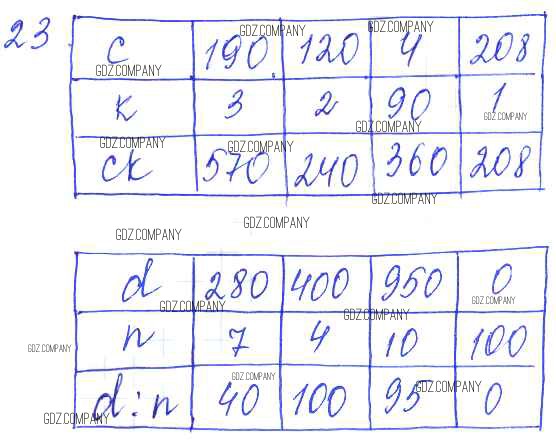 23.
GDZ.COMPANY GDZ.COMPANY
c 190 120 4 208
GDZ.COMPANY
k 3 2 90 1
GDZ.COMPANY
GDZ.COMPANY
GDZ.COMPANY GDZ.COMPANY
ck 570 240 360 208
GDZ.COMPANY
GDZ.COMPANY GDZ.COMPANY
d 280 400 950 0
GDZ.COMPANY GDZ.COMPANY GDZ.COMPANY
n 7 4 10 100
GDZ.COMPANY
GDZ.COMPANY GDZ.COMPANY
d:n 40 100 95 0
GDZ.COMPANY